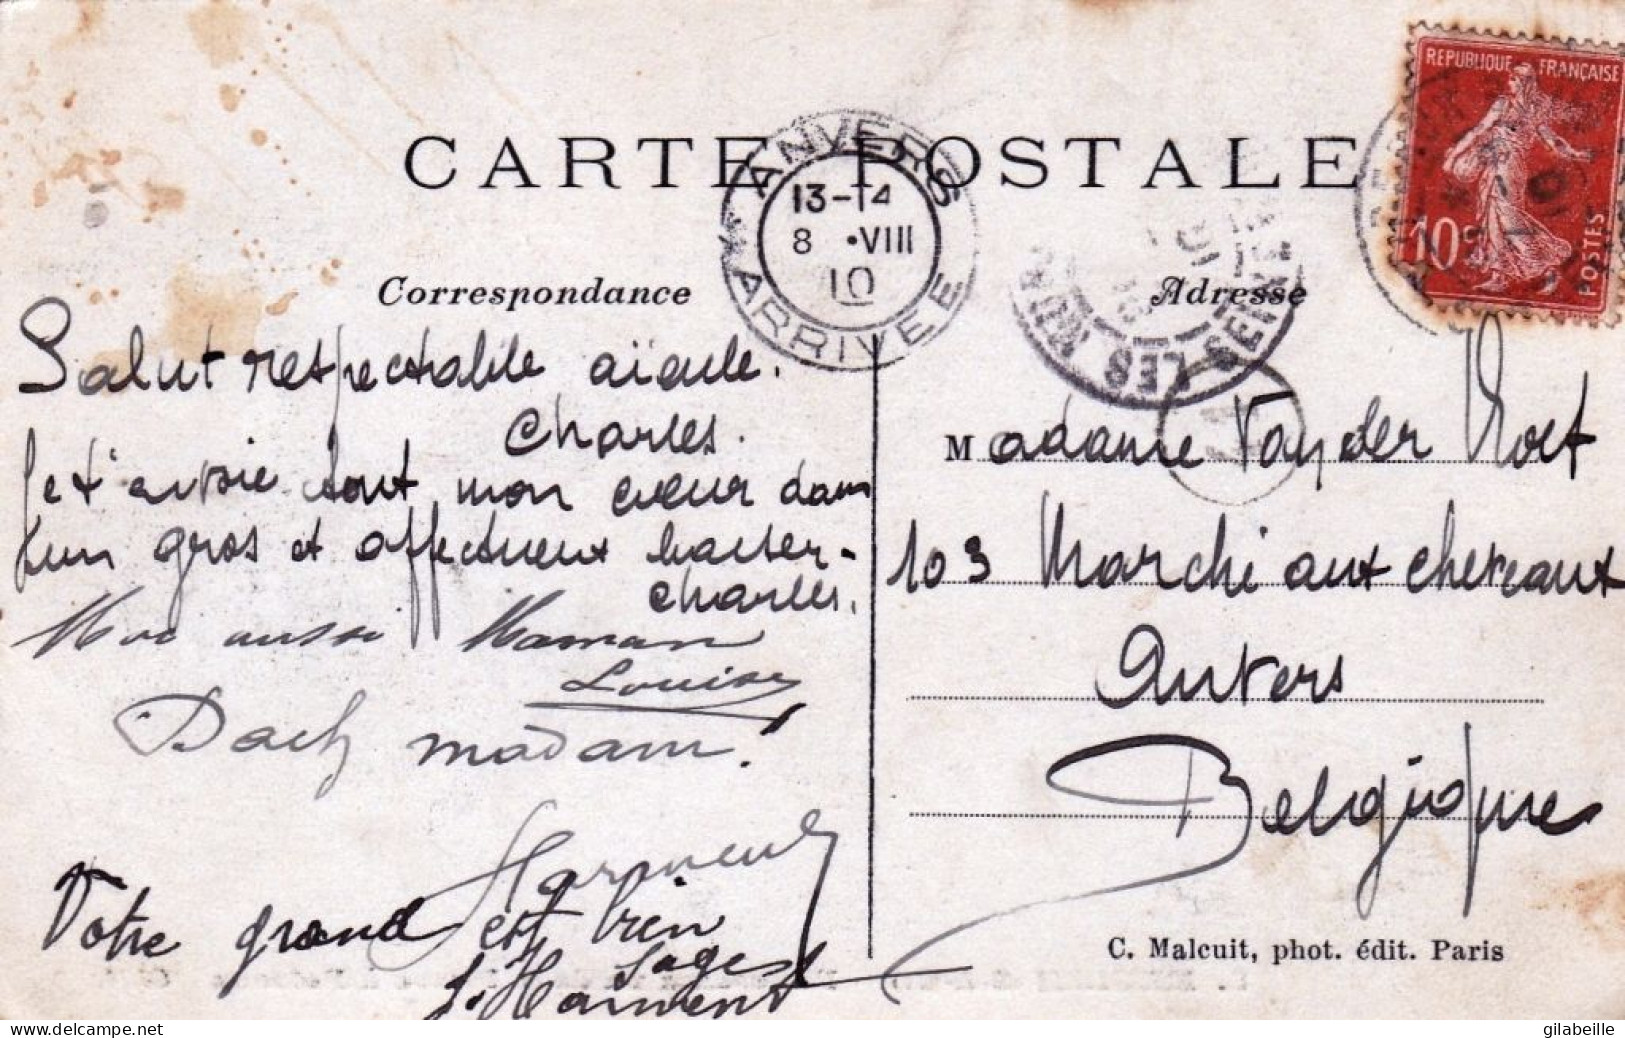 CARTE POSTALE
REPUBLIQUE FRANÇAISE
10c
POSTES
ANVERS
13-14
8 •VIII
10
ARRIVEE
LES
SEINE
Correspondance
Adresse
Salut respectable aïeule.
Charles.
Je t'envoie tout mon cœur dans
un gros et affectueux baiser-
Charles.
Moi aussi Maman
Louise
Dach madam!
Votre grand est bien
sage
Madame Van der
103 Marché aux chevaux
Anvers
Belgique
C. Malcuit, phot. édit. Paris
gilabeille